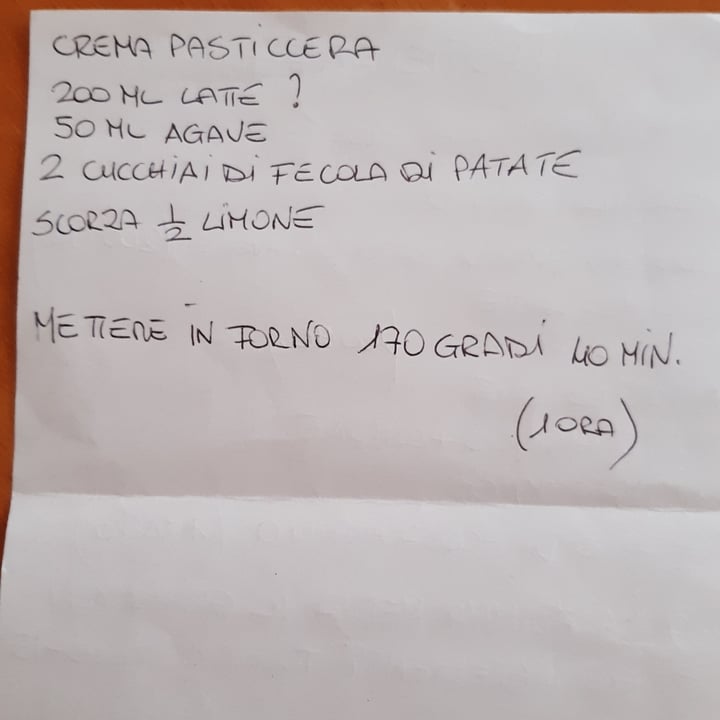 CREMA PASTICCERA
200 ML LATTE ?
50 ML AGAVE
2 CUCCHIAI DI FECOLA DI PATATE
SCORZA 1/2 LIMONE
METTERE IN FORNO 170 GRADI 40 MIN.
(1 ORA)